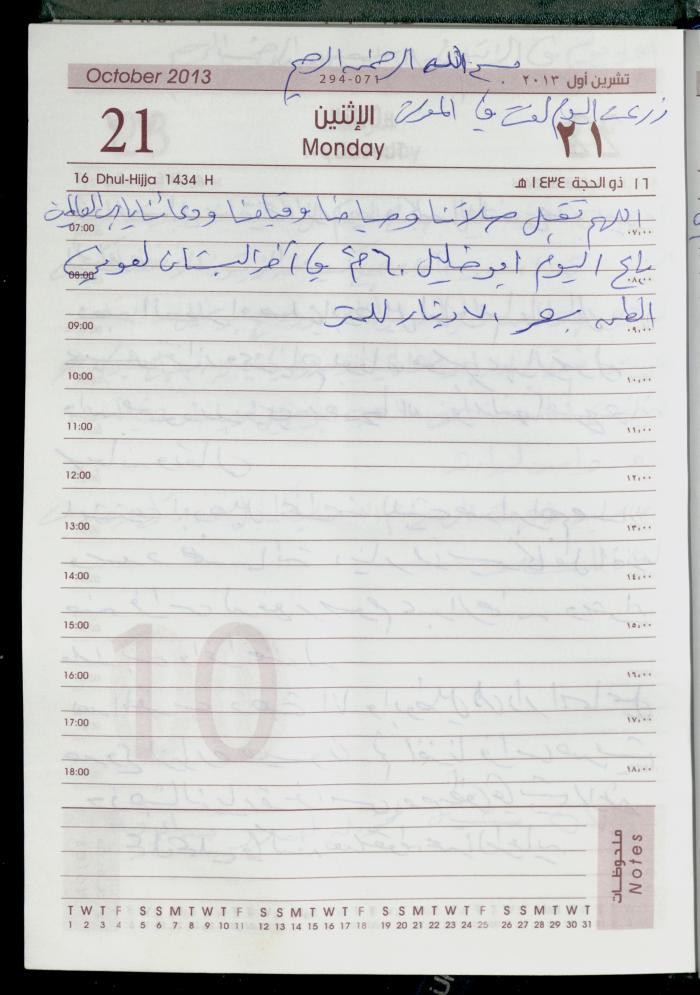 بسم الله الرحمن الرحيم
October 2013
294-071
تشرين أول ٢٠١٣
زرعت اليوم لفت في المورت
21
الإثنين
Monday
٢١
16 Dhul-Hijja 1434 H
١٦ ذو الحجة ١٤٣٤ هـ
اللهم تقبل صلاتنا وصيامنا وقيامنا ودعائنا يارب العالمين
07:00 ٠٧,٠٠
باع اليوم ابو خليل ٦٠ م٢ في آخر البستان لعوني
08:00 ٠٨,٠٠
الطن بسعر ٧٠ دينار للمتر
09:00 ٠٩,٠٠
10:00 ١٠,٠٠
11:00 ١١,٠٠
12:00 ١٢,٠٠
13:00 ١٣,٠٠
14:00 ١٤,٠٠
15:00 ١٥,٠٠
10
16:00 ١٦,٠٠
17:00 ١٧,٠٠
18:00 ١٨,٠٠
ملحوظات
Notes
T W T F S S M T W T F S S M T W T F S S M T W T F S S M T W T
1 2 3 4 5 6 7 8 9 10 11 12 13 14 15 16 17 18 19 20 21 22 23 24 25 26 27 28 29 30 31